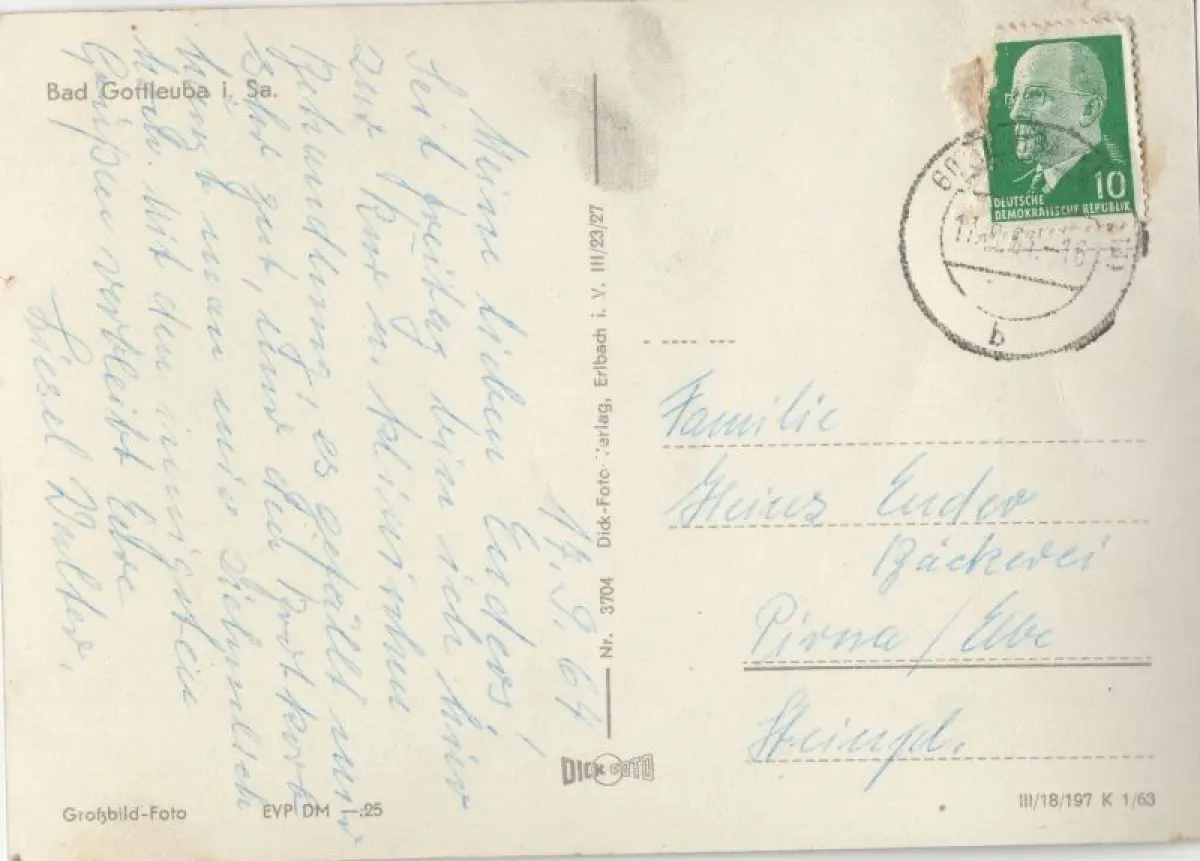 Bad Gottleuba i. Sa.
17. 9. 64
Meine lieben Enders!
Seit Freitag bin ich hier
zur Kur u. klinischen
Behandlung, es gefällt mir
sehr gut, und den Brotkorb
hängt man mir
hoch. Mit den innigsten
Grüßen verbleibt Eure
Liesel Walter.
Nr. 3704 Dick-Foto-Verlag, Erlbach i. V. III/23/27
DICK FOTO
Großbild-Foto EVP DM —.25
10
DEUTSCHE
DEMOKRATISCHE REPUBLIK
-16
b
Familie
Heinz Ender
Bäckerei
Pirna / Elbe
Steinpl.
III/18/197 K 1/63